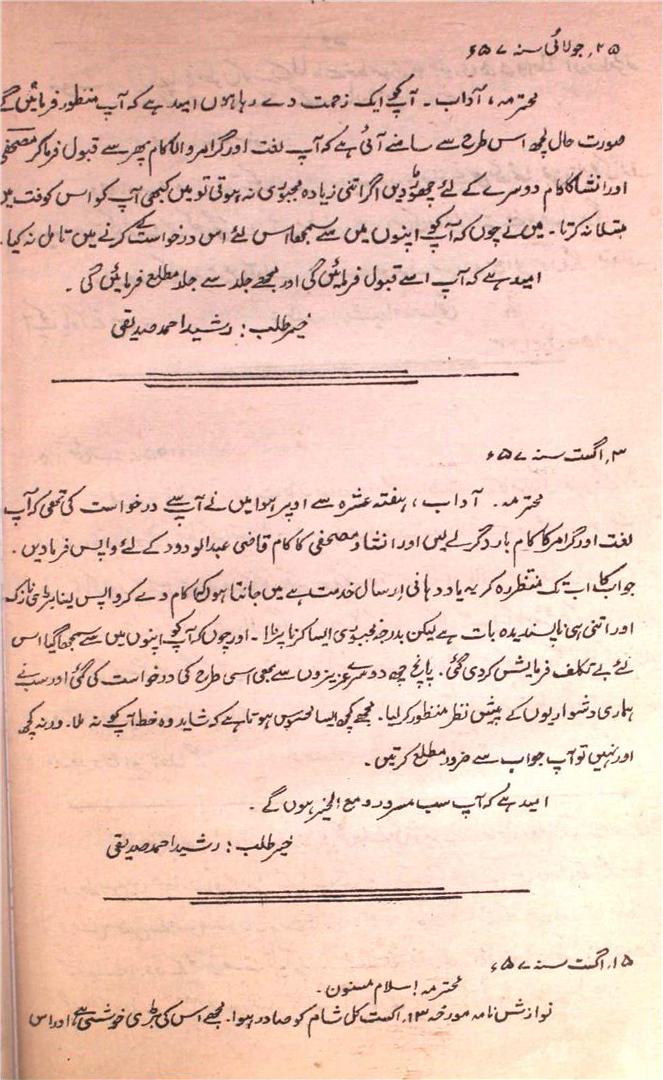 ۲۵؍ جولائی سنہ ۵۷ء
محترمہ، آداب ۔ آپ کو ایک زحمت دے رہا ہوں امید ہے کہ آپ منظور فرمائیں گے
صورت حال کچھ اس طرح سے سامنے آئی ہے کہ آپ لغت اور گرامر والا کام پھر سے قبول فرما کر مصحفی
اور انشا کا کام دوسرے کے لئے چھوڑ دیں اگر اتنی زیادہ مجبوری نہ ہوتی تو میں کبھی آپ کو اس کوفت میں
مبتلا نہ کرتا ۔ میں نے چوں کہ آپ کو اپنوں میں سے سمجھا اس لئے اس درخواست کے کرنے میں تامل نہ کیا ۔
امید ہے کہ آپ اسے قبول فرمائیں گی اور مجھے جلد سے جلد مطلع فرمائیں گی ۔
خیر طلب : رشید احمد صدیقی
۳؍ اگست سنہ ۵۷ء
محترمہ ۔ آداب ، ہفتہ عشرہ سے اوپر ہوا میں نے آپ سے درخواست کی تھی کہ آپ
لغت اور گرامر کا کام بار دگر لے لیں اور انشا و مصحفی کا کام قاضی عبدالودود کے لئے واپس فرما دیں ۔
جواب کا اب تک منتظر رہ کر یہ یاد دہانی ارسال خدمت ہے میں جانتا ہوں کہ کام دے کر واپس لینا بڑی نازک
اور اتنی ہی ناپسندیدہ بات ہے لیکن بدرجہ مجبوری ایسا کرنا پڑا ۔ اور چوں کہ آپ کو اپنوں میں سے سمجھا گیا اس
لئے بے تکلف فرمایش کر دی گئی ۔ پانچ چھ دوسرے عزیزوں سے بھی اسی طرح کی درخواست کی گئی اور سب نے
ہماری دشواریوں کے پیش نظر منظور کر لیا ۔ مجھے کچھ ایسا محسوس ہوتا ہے کہ شاید وہ خط آپ کو نہ ملا ۔ ورنہ کچھ
اور نہیں تو آپ جواب سے ضرور مطلع کرتیں ۔
امید ہے کہ آپ سب مسرور و مع الخیر ہوں گے ۔
خیر طلب : رشید احمد صدیقی
۱۵؍ اگست سنہ ۵۷ء
محترمہ ! سلام مسنون ۔
نوازش نامہ مورخہ ۱۳؍ اگست کل شام کو صادر ہوا ۔ مجھے اس کی بڑی خوشی ہے اور اس